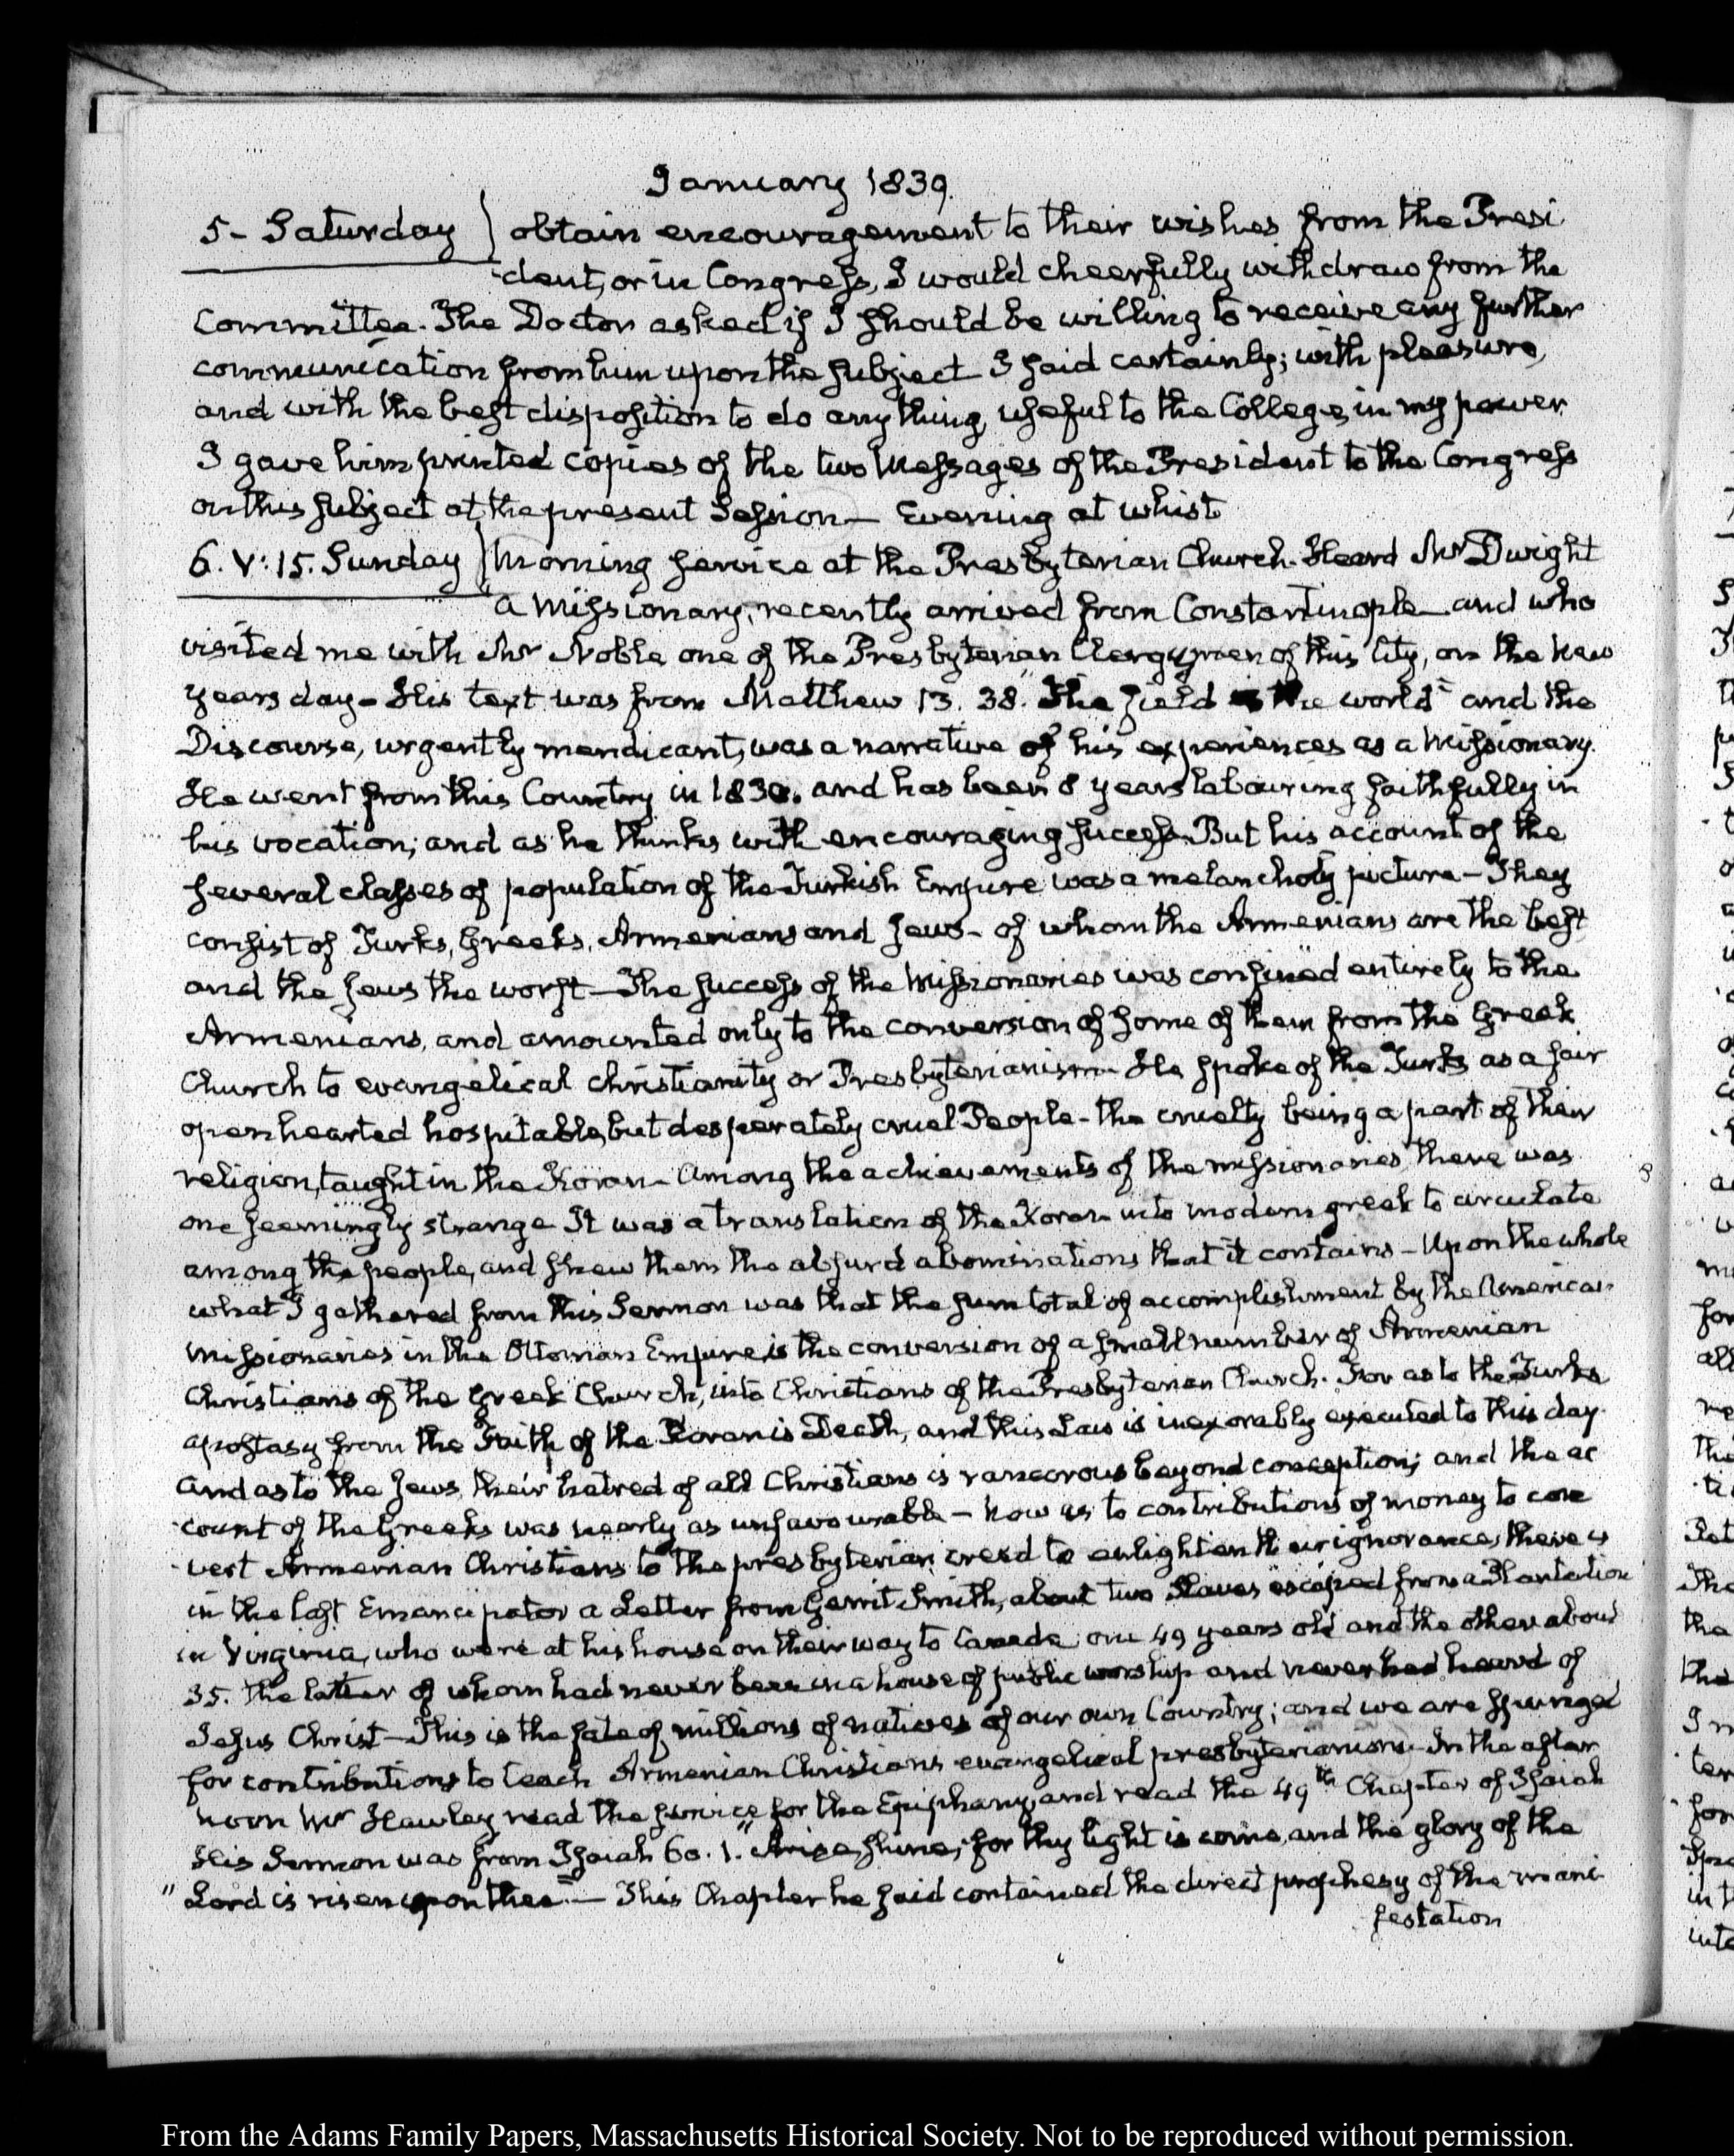 January 1839.
5- Saturday } obtain encouragement to their wishes from the Presi
-dent, or in Congress, I would cheerfully withdraw from the
Committee. The Doctor asked if I should be willing to receive any further
communication from him upon the subject I said certainly; with pleasure,
and with the best disposition to do any thing useful to the College in my power
I gave him printed copies of the two Messages of the President to the Congress
on this subject at the present Session — Evening at whist
6. V: 15. Sunday } Morning service at the Presbyterian Church. Heard Mr Dwight
a Missionary, recently arrived from Constantinople — and who
visited me with Mr Noble one of the Presbyterian Clergymen of this City, on the New
years day — His text was from Matthew 13. 38. "The field is the world" and the
Discourse, urgently mendicant, was a narrative of his experiences as a Missionary.
He went from this Country in 1830. and has been 8 years labouring faithfully in
his vocation; and as he thinks with encouraging success. But his account of the
several classes of population of the Turkish Empire was a melancholy picture — They
consist of Turks, Greeks, Armenians and Jews — of whom the Armenians are the best
and the Jews the worst — The success of the Missionaries was confined entirely to the
Armenians, and amounted only to the conversion of some of them from the Greek
Church to evangelical christianity or Presbyterianism — He spoke of the Turks as a fair
open hearted hospitable, but desperately cruel People — the cruelty being a part of their
religion, taught in the Koran — Among the achievements of the missionaries there was
one seemingly strange It was a translation of the Koran into modern greek to circulate
among the people, and shew them the absurd abominations that it contains — Upon the whole
what I gathered from this Sermon was that the sum total of accomplishment by the American
missionaries in the Ottoman Empire, is the conversion of a small number of Armenian
Christians of the Greek Church, into Christians of the Presbyterian Church. For as to the Turks
apostasy from the Faith of the Koran is Death, and this Law is inexorably executed to this day.
And as to the Jews, their hatred of all Christians is rancorous beyond conception; and the ac
-count of the Greeks was nearly as unfavourable — Now as to contributions of money to con
-vert Armenian Christians to the presbyterian creed to enlighten their ignorance, there is
in the last Emancipator a Letter from Gerrit Smith, about two Slaves escaped from a Plantation
in Virginia, who were at his house on their way to Canada one 49 years old and the other about
35. the latter of whom had never been in a house of public worship and never had heard of
Jesus Christ — This is the fate of millions of natives of our own Country; and we are spunged
for contributions to teach Armenian Christians evangelical presbyterianism — In the after
noon Mr Hawley read the service for the Epiphany, and read the 49th Chapter of Isaiah
His Sermon was from Isaiah 60. 1. "Arise, shine, for thy light is come, and the glory of the
"Lord is risen upon thee" — This Chapter he said contained the direct prophesy of the mani
festation
From the Adams Family Papers, Massachusetts Historical Society. Not to be reproduced without permission.